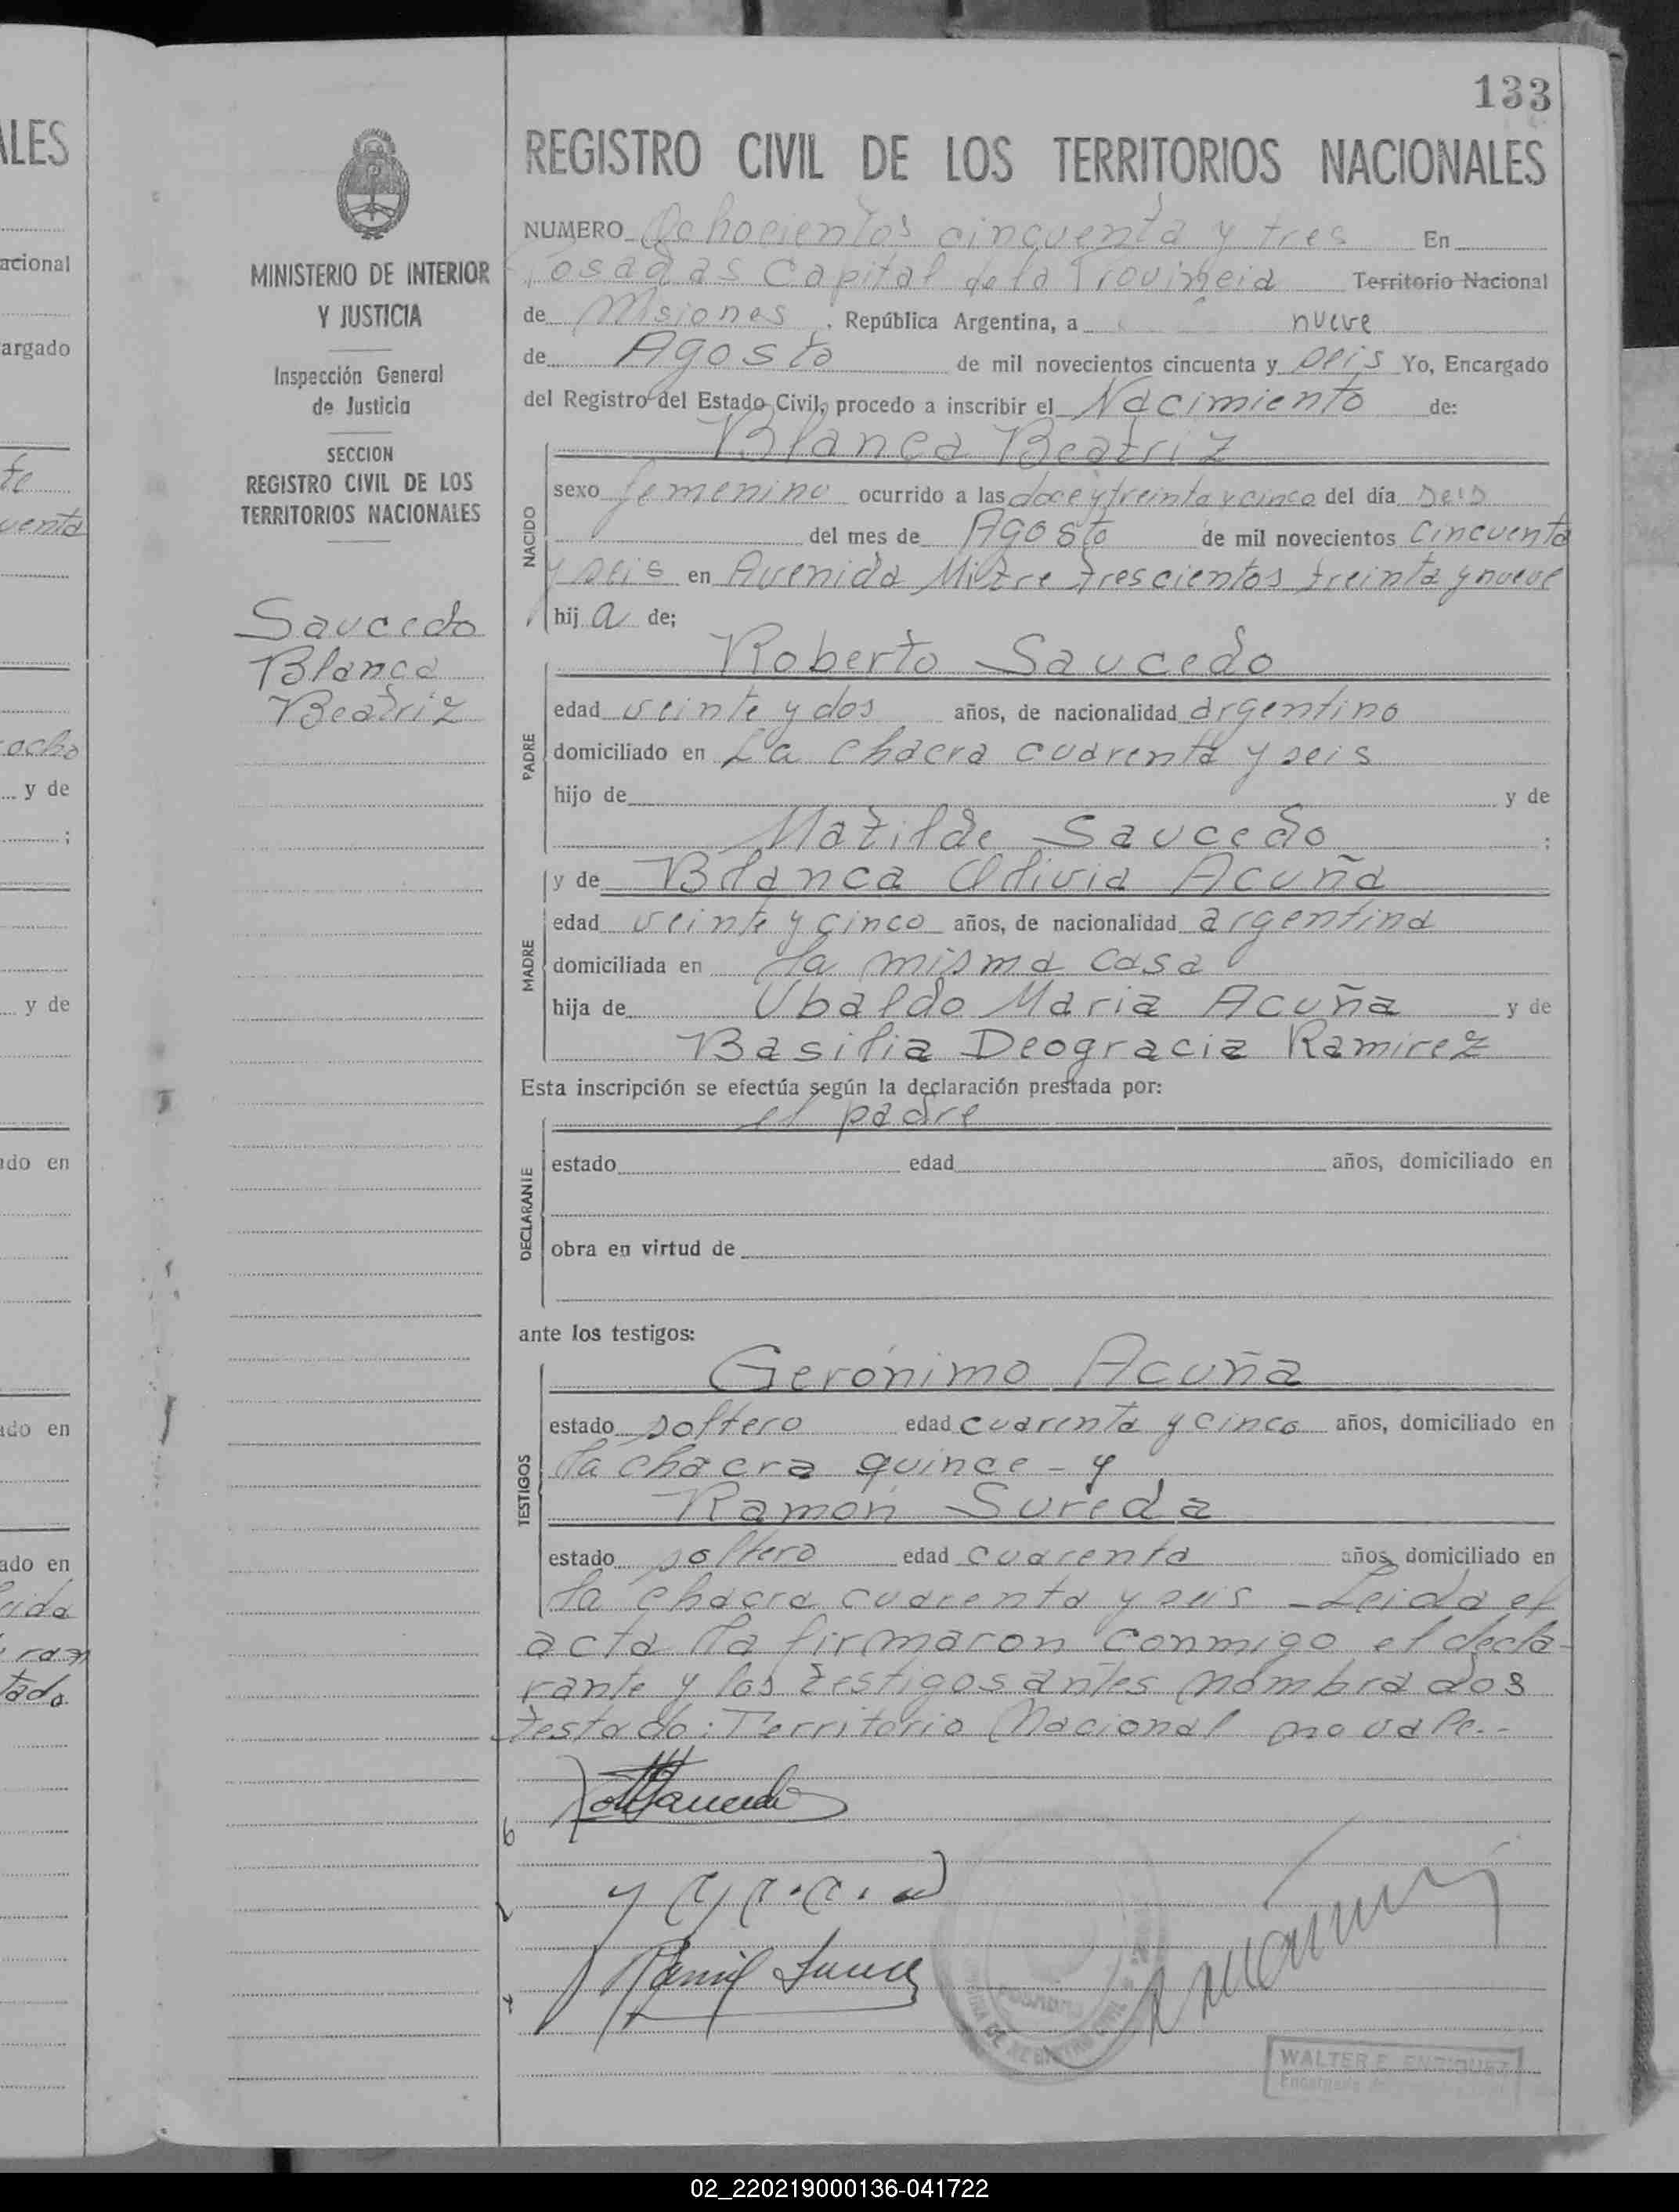 133
ALES
REGISTRO CIVIL DE LOS TERRITORIOS NACIONALES
NUMERO Ochocientos cincuenta y tres En
Posadas Capital de la Provincia Territorio Nacional
de Misiones, República Argentina, a nueve
de Agosto de mil novecientos cincuenta y seis Yo, Encargado
del Registro del Estado Civil, procedo a inscribir el Nacimiento de:
MINISTERIO DE INTERIOR
Y JUSTICIA
Inspección General
de Justicia
SECCION
REGISTRO CIVIL DE LOS
TERRITORIOS NACIONALES
Saucedo
Blanca
Beatriz
NACIDO
Blanca Beatriz
sexo femenino ocurrido a las doce y treinta y cinco del día seis
del mes de Agosto de mil novecientos cincuenta
y seis en Avenida Mitre trescientos treinta y nueve
hij a de;
PADRE
Roberto Saucedo
edad veinte y dos años, de nacionalidad argentino
domiciliado en La chacra cuarenta y seis
hijo de y de
Matilde Saucedo ;
y de Blanca Olivia Acuña
MADRE
edad veinte y cinco años, de nacionalidad argentina
domiciliada en la misma casa
hija de Ubaldo Maria Acuña y de
Basilia Deogracia Ramirez
Esta inscripción se efectúa según la declaración prestada por:
el padre
DECLARANTE
estado edad años, domiciliado en
obra en virtud de
ante los testigos:
Gerónimo Acuña
TESTIGOS
estado soltero edad cuarenta y cinco años, domiciliado en
la chacra quince - y
Ramón Sureda
estado soltero edad cuarenta años, domiciliado en
la chacra cuarenta y seis - Leida el
acta la firmaron conmigo el decla-
rante y los testigos antes nombrados
testado: Territorio Nacional no vale.-
WALTER E. ENRIQUEZ
Encargado
acional
argado
te
uenta
ocho
y de
;
y de
ado en
ado en
ado en
eida
ran
tado
02_220219000136-041722